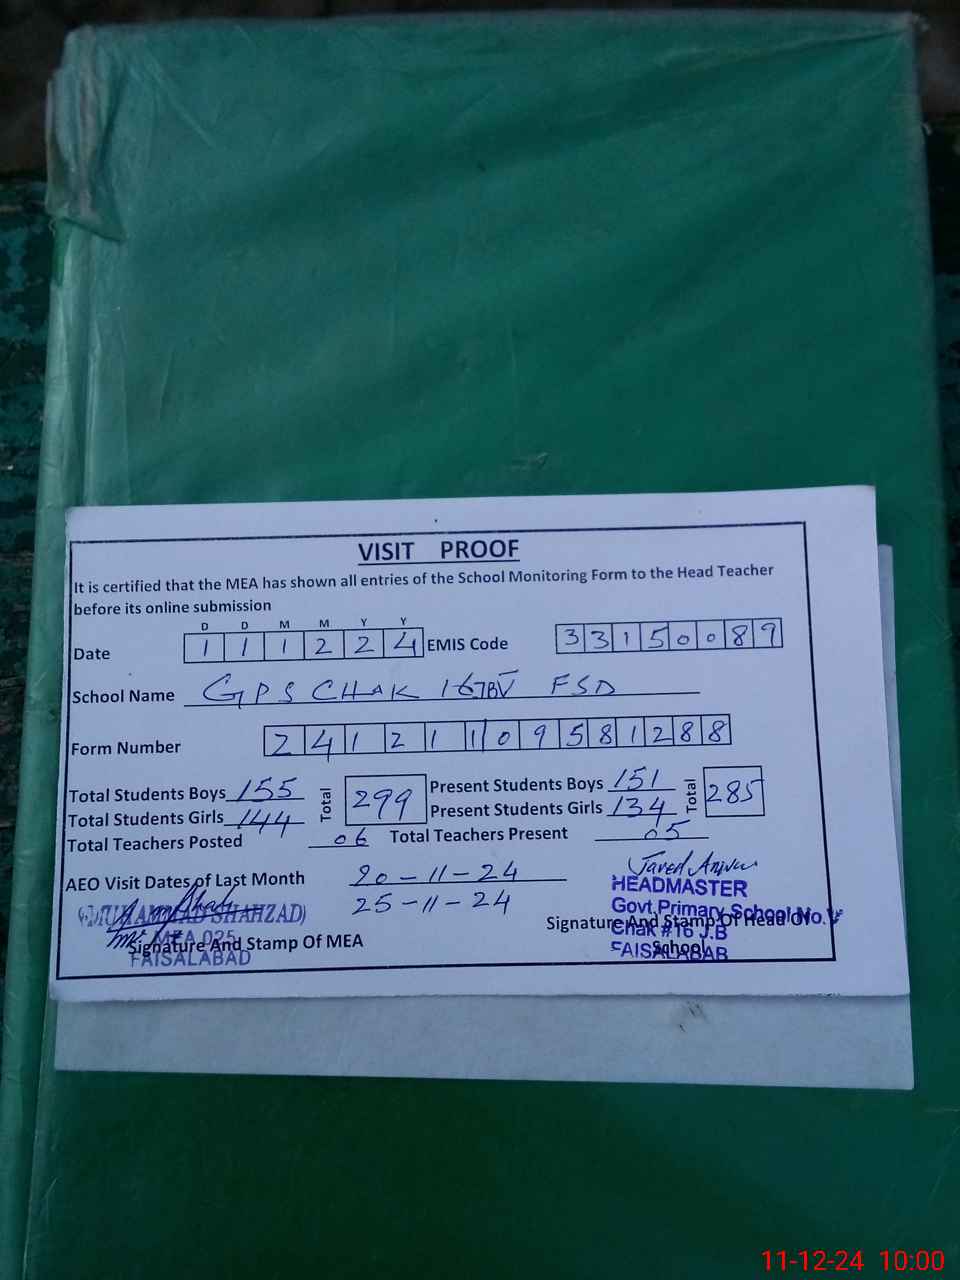 VISIT PROOF
It is certified that the MEA has shown all entries of the School Monitoring Form to the Head Teacher
before its online submission
D D M M Y Y
Date 1 1 1 2 2 4 EMIS Code 3 3 1 5 0 0 8 9
School Name GPS CHAK 16JBV FSD
Form Number 2 4 1 2 1 1 1 0 9 5 8 1 2 8 8
Total Students Boys 155 Total 299 Present Students Boys 151 Total 285
Total Students Girls 144 Present Students Girls 134
Total Teachers Posted 06 Total Teachers Present 05
AEO Visit Dates of Last Month 20-11-24
25-11-24
Javed Anwar
HEADMASTER
Govt.Primary School No.V
Chak #16 J.B
FAISALABAB
Signature And Stamp Of Head Of
School
SHAHZAD)
MEA 025
FAISALABAD
Signature And Stamp Of MEA
11-12-24 10:00